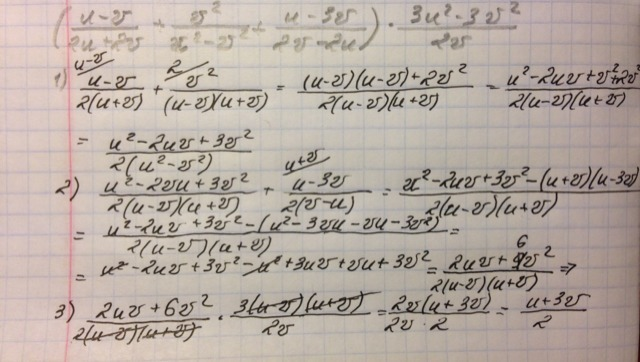 ((u-v)/(2u+2v) + v²/(u²-v²) + (u-3v)/(2v-2u)) · (3u²-3v²)/(2v)
1) (u-v)/(2(u+v)) ^(u-v) + v²/((u-v)(u+v)) ^2 = ((u-v)(u-v)+2v²)/(2(u-v)(u+v)) = (u²-2uv+v²+2v²)/(2(u-v)(u+v))
= (u²-2uv+3v²)/(2(u²-v²))
2) (u²-2vu+3v²)/(2(u-v)(u+v)) + (u-3v)/(2(v-u)) ^(u+v) = (u²-2uv+3v²-(u+v)(u-3v))/(2(u-v)(u+v))
= (u²-2uv+3v²-(u²-3vu-vu-3v²))/(2(u-v)(u+v)) =
= u²-2uv+3v²-u²+3uv+vu+3v² = (2uv+6v²)/(2(u-v)(u+v)) ⇒
3) (2uv+6v²)/(2(u-v)(u+v)) · (3(u-v)(u+v))/(2v) = (2v(u+3v))/(2v·2) = (u+3v)/2